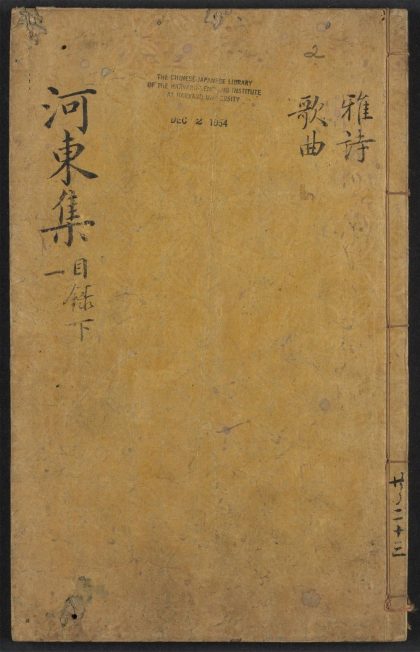 雅詩
歌曲
2
THE CHINESE-JAPANESE LIBRARY
OF THE HARVARD-YENCHING INSTITUTE
AT HARVARD UNIVERSITY
DEC 2 1954
河東集
目錄下
一
二十三